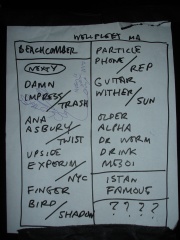 WELLFLEET MA
BEACHCOMBER
DAMN
IMPRESS/TRASH
ANA
ASBURY/TWIST
UPSIDE
EXPERIM/NYC
FINGER
BIRD/SHADOW
PARTICLE
PHONE/REP
GUITAR
WITHER/SUN
OLDER
ALPHA
DR WORM
DRINK
ISTAN
FAMOUS
? ? ? ?